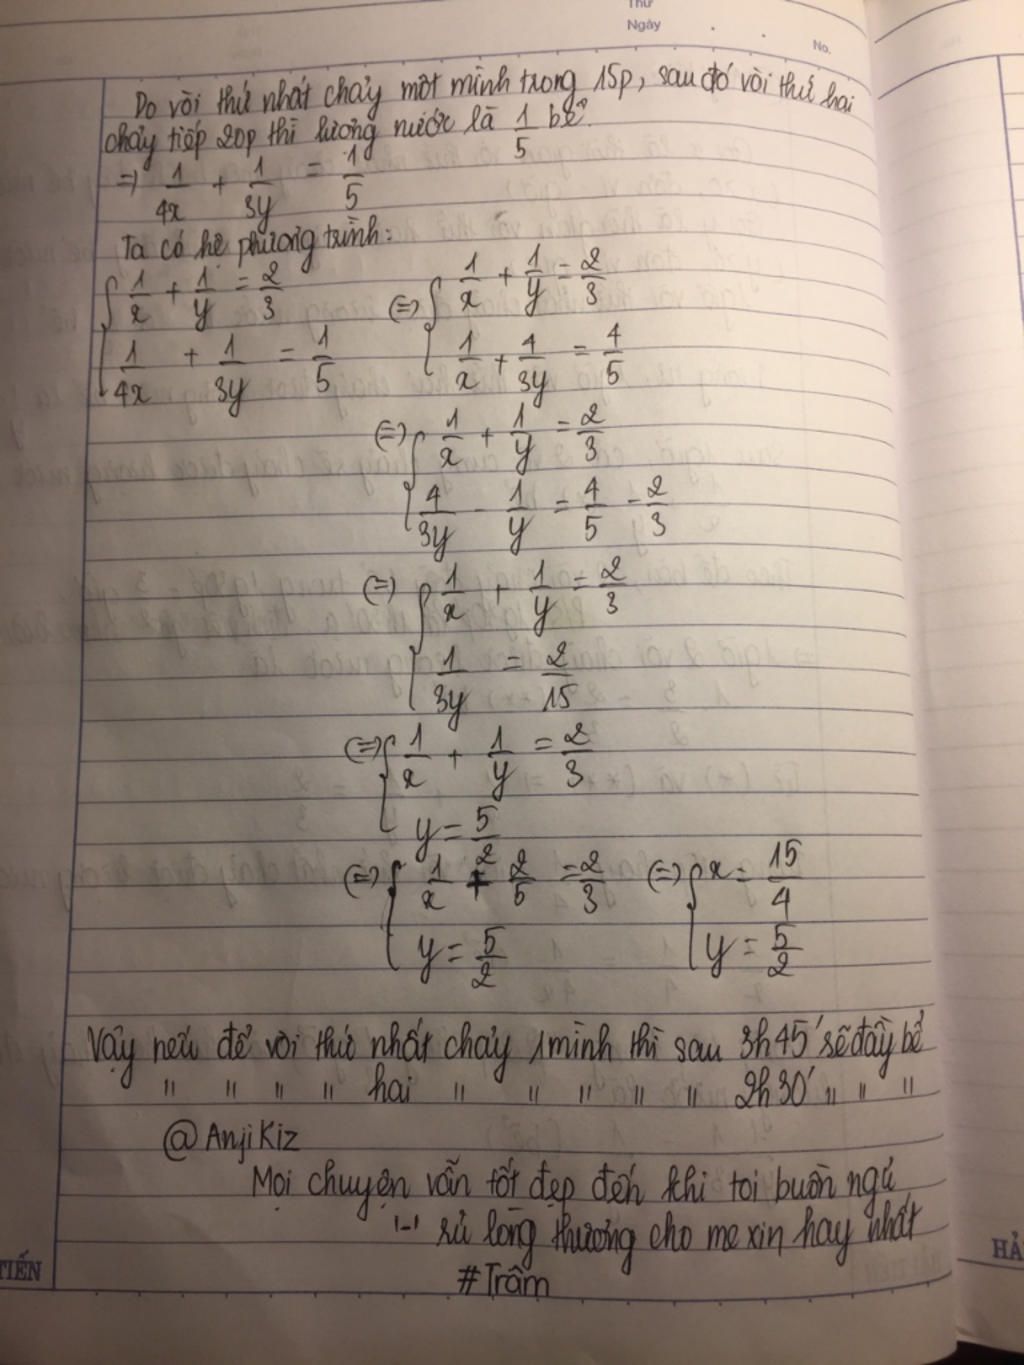 Thứ
Ngày
No.
Do vòi thứ nhất chảy một mình trong 15p, sau đó vòi thứ hai
chảy tiếp 20p thì lượng nước là 1/5 bể.
=> 1/4x + 1/3y = 1/5
Ta có hệ phương trình:
{ 1/x + 1/y = 2/3 (=) { 1/x + 1/y = 2/3
{ 1/4x + 1/3y = 1/5 { 1/x + 4/3y = 4/5
(=) { 1/x + 1/y = 2/3
{ 4/3y - 1/y = 4/5 - 2/3
(=) { 1/x + 1/y = 2/3
{ 1/3y = 2/15
(=) { 1/x + 1/y = 2/3
{ y = 5/2
(=) { 1/x + 2/5 = 2/3 (=) { x = 15/4
{ y = 5/2 { y = 5/2
Vậy nếu để vòi thứ nhất chảy 1 mình thì sau 3h45' sẽ đầy bể
" " " " hai " " " " " 2h30' " " "
@AnjiKiz
Mọi chuyện vẫn tốt đẹp đến khi toi buồn ngủ
'-' rủ lòng thương cho me xin hay nhất
#Trâm
TIẾN
HẢ